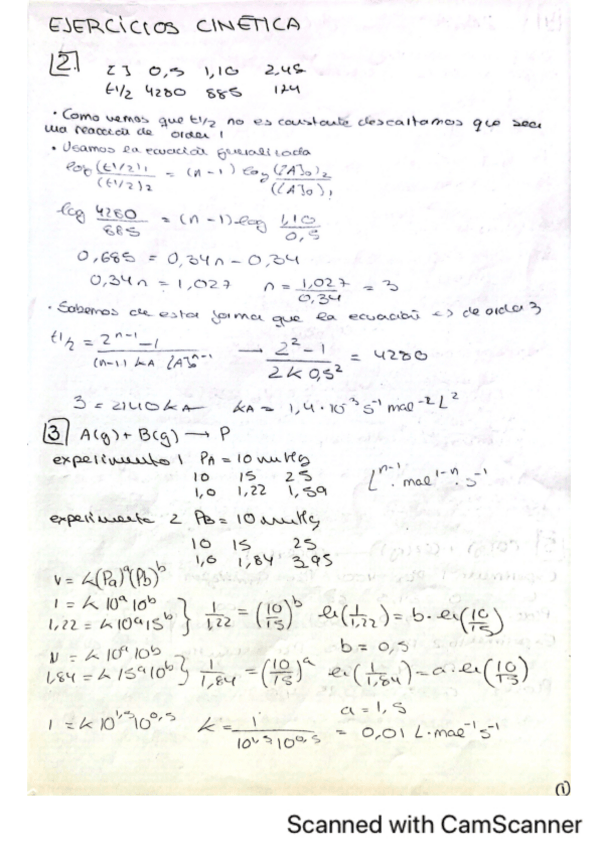 EJERCICIOS CINÉTICA
2. [ ] 0,5 1,10 2,48
t1/2 4280 885 174
· Como vemos que t1/2 no es constante descartamos que sea
una reacción de orden 1
· Usamos la ecuación generalizada
log (t1/2)1/(t1/2)2 = (n-1) log ([A]o)2/([A]o)1
log 4280/885 = (n-1) log 1,10/0,5
0,685 = 0,34n - 0,34
0,34n = 1,027 n = 1,027/0,34 = 3
· Sabemos de esta forma que la ecuación es de orden 3
t1/2 = 2^n-1 -1/(n-1) kA [A]o^n-1 → 2^2-1/2k 0,5^2 = 4280
3 = 2140 kA kA = 1,4·10^-3 s^-1 mol^-2 L^2
3 A(g) + B(g) → P
experimento 1 PA = 10 mmHg
10 15 25
1,0 1,22 1,59
L^n-1 · mol^1-n · s^-1
experimento 2 PB = 10 mmHg
10 15 25
1,0 1,84 3,95
v = k(Pa)^a(Pb)^b
1 = k 10^a 10^b
1,22 = k 10^a 15^b } 1/1,22 = (10/15)^b ln(1/1,22) = b·ln(10/15)
b = 0,5
1 = k 10^a 10^b
1,84 = k 15^a 10^b } 1/1,84 = (10/15)^a ln(1/1,84) = a·ln(10/15)
a = 1,5
1 = k 10^1,5 10^0,5 k = 1/10^1,5 10^0,5 = 0,01 L·mol^-1 s^-1
1
Scanned with CamScanner